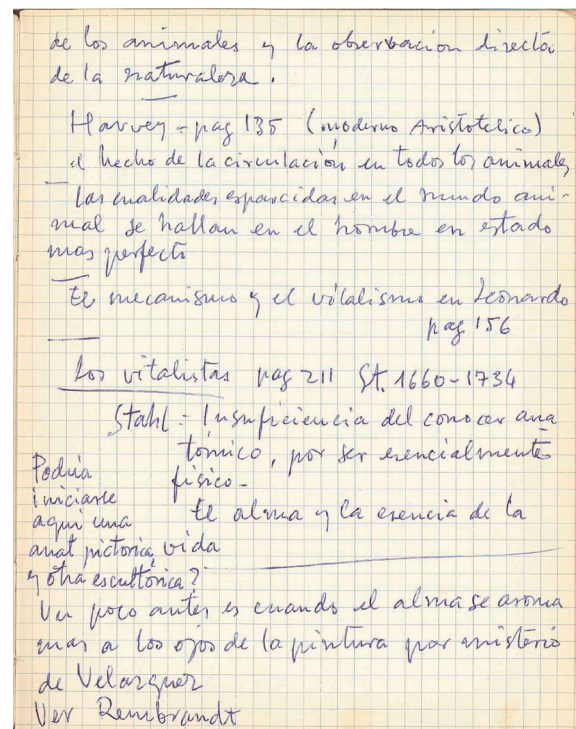 de los animales y la observacion directa
de la naturaleza.
Harvey - pag 135 (moderno Aristotelico)
el hecho de la circulación en todos los animales
Las cualidades esparcidas en el mundo ani-
mal se hallan en el hombre en estado
mas perfecto
El mecanismo y el vitalismo en Leonardo
pag 156
Los vitalistas pag 211 St. 1660-1734
Stahl - Insuficiencia del conocer ana
tómico, por ser esencialmente
físico -
El alma y la esencia de la
vida
Podria
iniciarse
aqui una
anat pictorica
y otra escultórica?
Un poco antes es cuando el alma se asoma
mas a los ojos de la pintura por misterio
de Velazquez
Ver Rembrandt